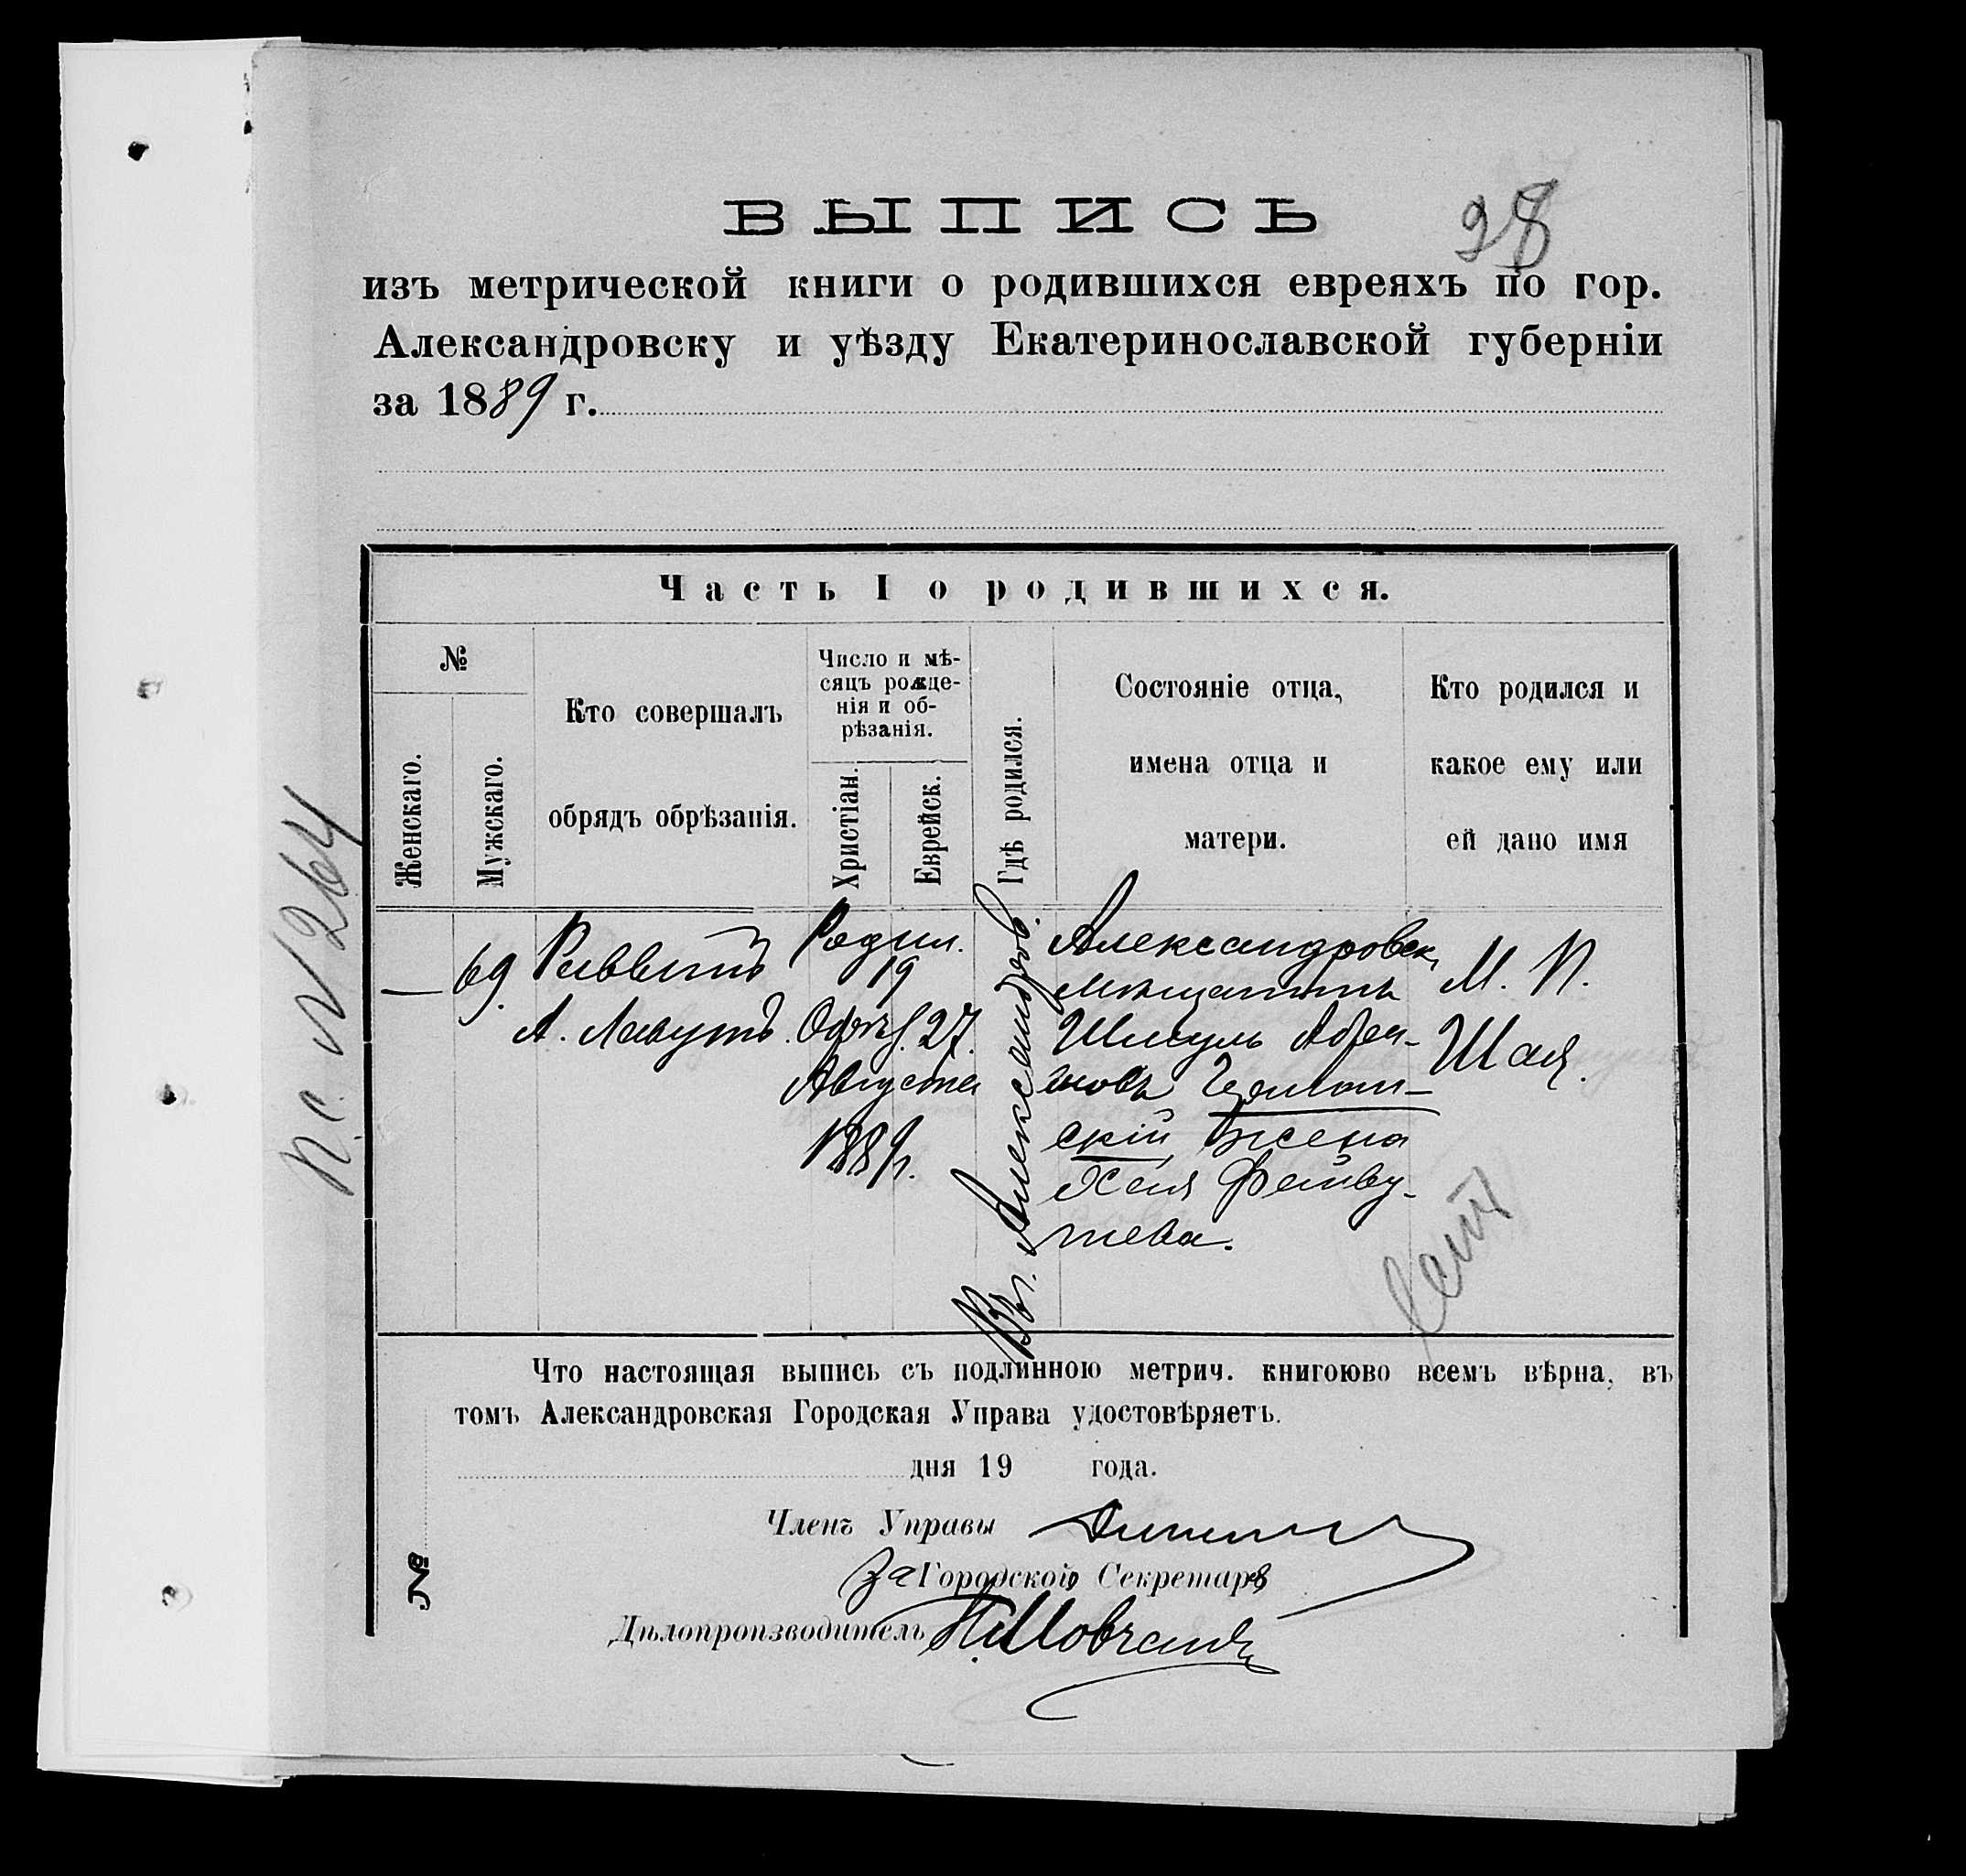 ВЫПИСЬ
28
изъ метрической книги о родившихся евреяхъ по гор.
Александровску и уѣзду Екатеринославской губерніи
за 1889 г.
Часть I о родившихся.
№
Женскаго.
Мужскаго.
Кто совершалъ
обрядъ обрѣзанія.
Число и мѣ-
сяцъ рожде-
нія и об-
рѣзанія.
Христіан.
Еврейск.
Гдѣ родился.
Состояніе отца,
имена отца и
матери.
Кто родился и
какое ему или
ей дано имя
—
69.
Раввинъ
А. Лавутъ.
Родил.
19
Обрѣз. 27.
Августа
1889 г.
Въ г. Александров.
Александровск.
мѣщанинъ
Шмуль Абра-
мовъ
скій жена
Хая Файву-
шева.
М. П.
Шая.
П. с. № 264
Что настоящая выпись съ подлинною метрич. книгоюво всемъ вѣрна, въ
томъ Александровская Городская Управа удостовѣряетъ.
дня 19 года.
Членъ Управы
За Городского Секретаря
Дѣлопроизводитель Н. Мовчанъ
№